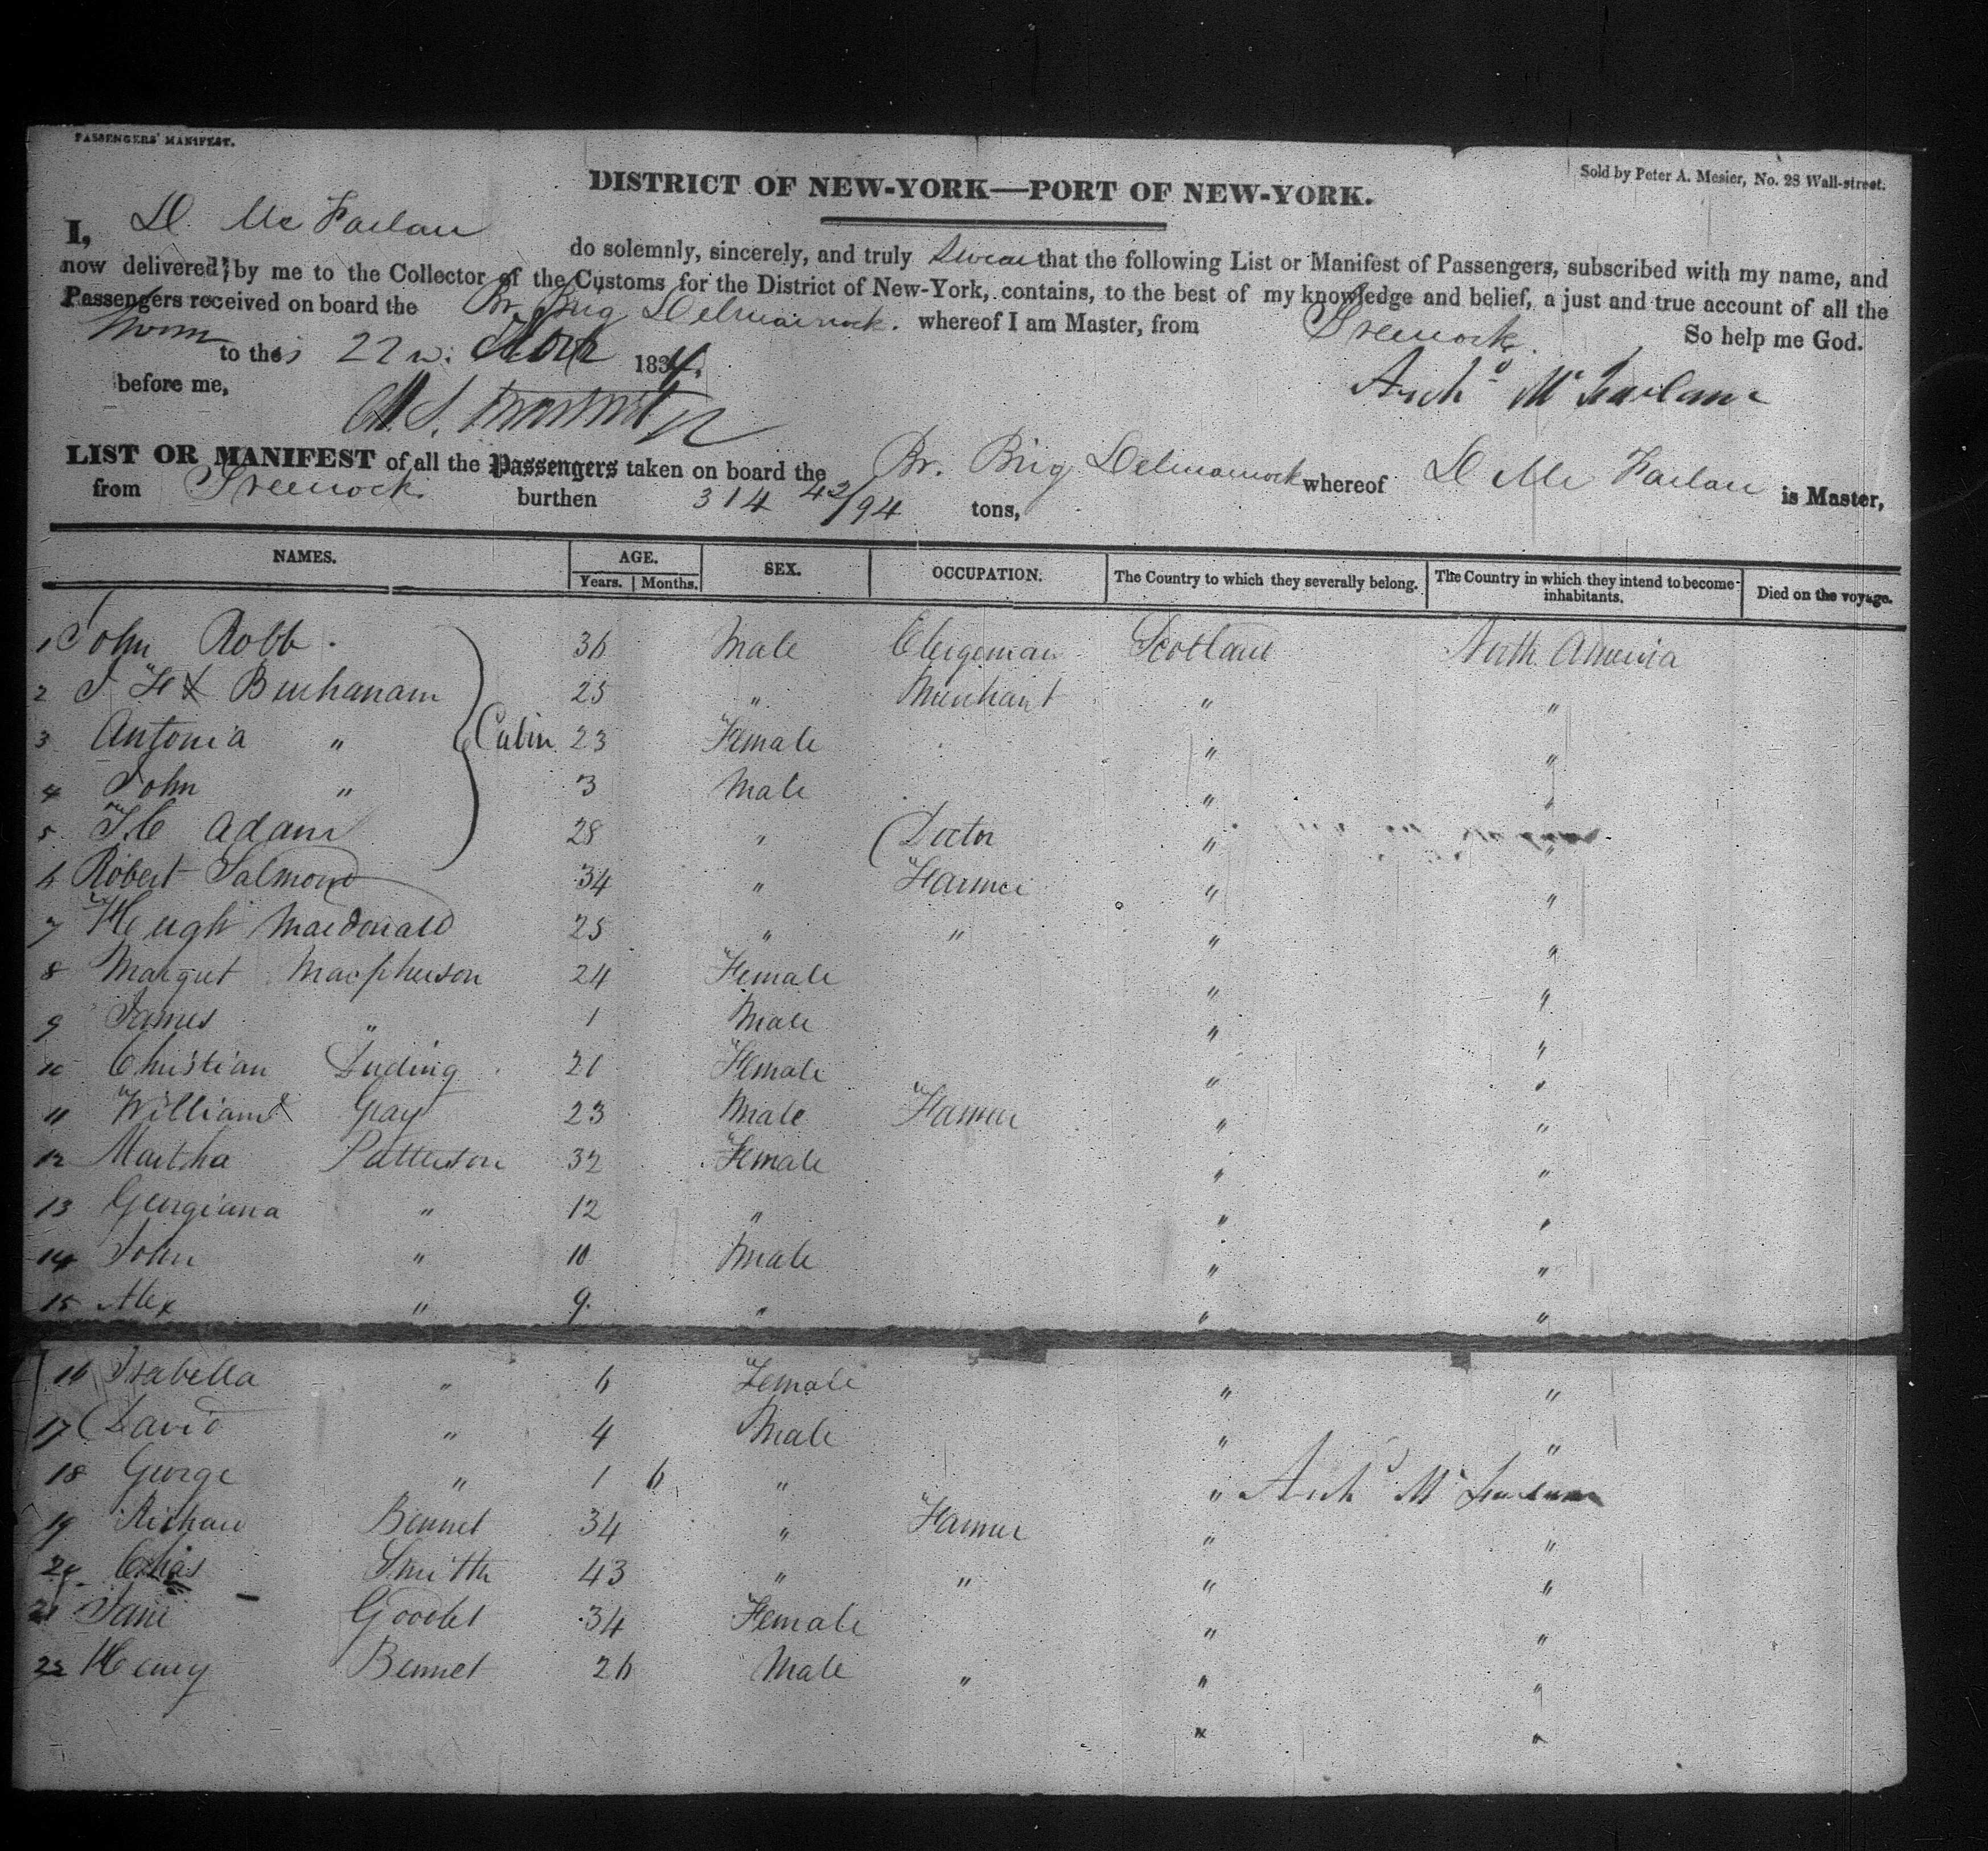 PASSENGERS' MANIFEST.
Sold by Peter A. Mesier, No. 28 Wall-street.
DISTRICT OF NEW-YORK—PORT OF NEW-YORK.
I, D. Mc Farlan do solemnly, sincerely, and truly swear that the following List or Manifest of Passengers, subscribed with my name, and
now delivered, by me to the Collector of the Customs for the District of New-York, contains, to the best of my knowledge and belief, a just and true account of all the
Passengers received on board the Br. Brig Delmarnock. whereof I am Master, from Greenock.
Sworn to this 22n. 1834. So help me God.
before me, Archd. Mc Farlane
LIST OR MANIFEST of all the Passengers taken on board the Br. Brig Delmarnock whereof D Mc Farlan is Master,
from Greenock. burthen 314 42/94 tons,
NAMES. AGE. SEX. OCCUPATION. The Country to which they severally belong. The Country in which they intend to become inhabitants. Died on the voyage.
Years. Months.
1 John Robb. 36 Male Clergeman Scotland North America
2 J F Buchanam 25 " Merchant " "
3 Antonia " Cabin 23 Female " "
4 John " 3 Male " "
5 J C Adam 28 " Doctor " "
6 Robert Salmond 34 " Farmer " "
7 Hugh Macdonald 25 " " " "
8 Margret Macpherson 24 Female " "
9 James " 1 Male " "
10 Christian Luding 21 Female " "
11 William Gray 23 Male Farmer " "
12 Martha Patterson 32 Female " "
13 Georgiana " 12 " " "
14 John " 10 Male " "
15 Alex " 9 " " "
16 Isabella " 6 Female " "
17 David " 4 Male " "
18 George " 1 6 " " Archd Mc Farlane
19 Richard Bennet 34 " Farmer " "
20 Chas Smith 43 " " " "
21 Jane Goodet 34 Female " "
22 Henry Bennet 26 Male " " "
" "